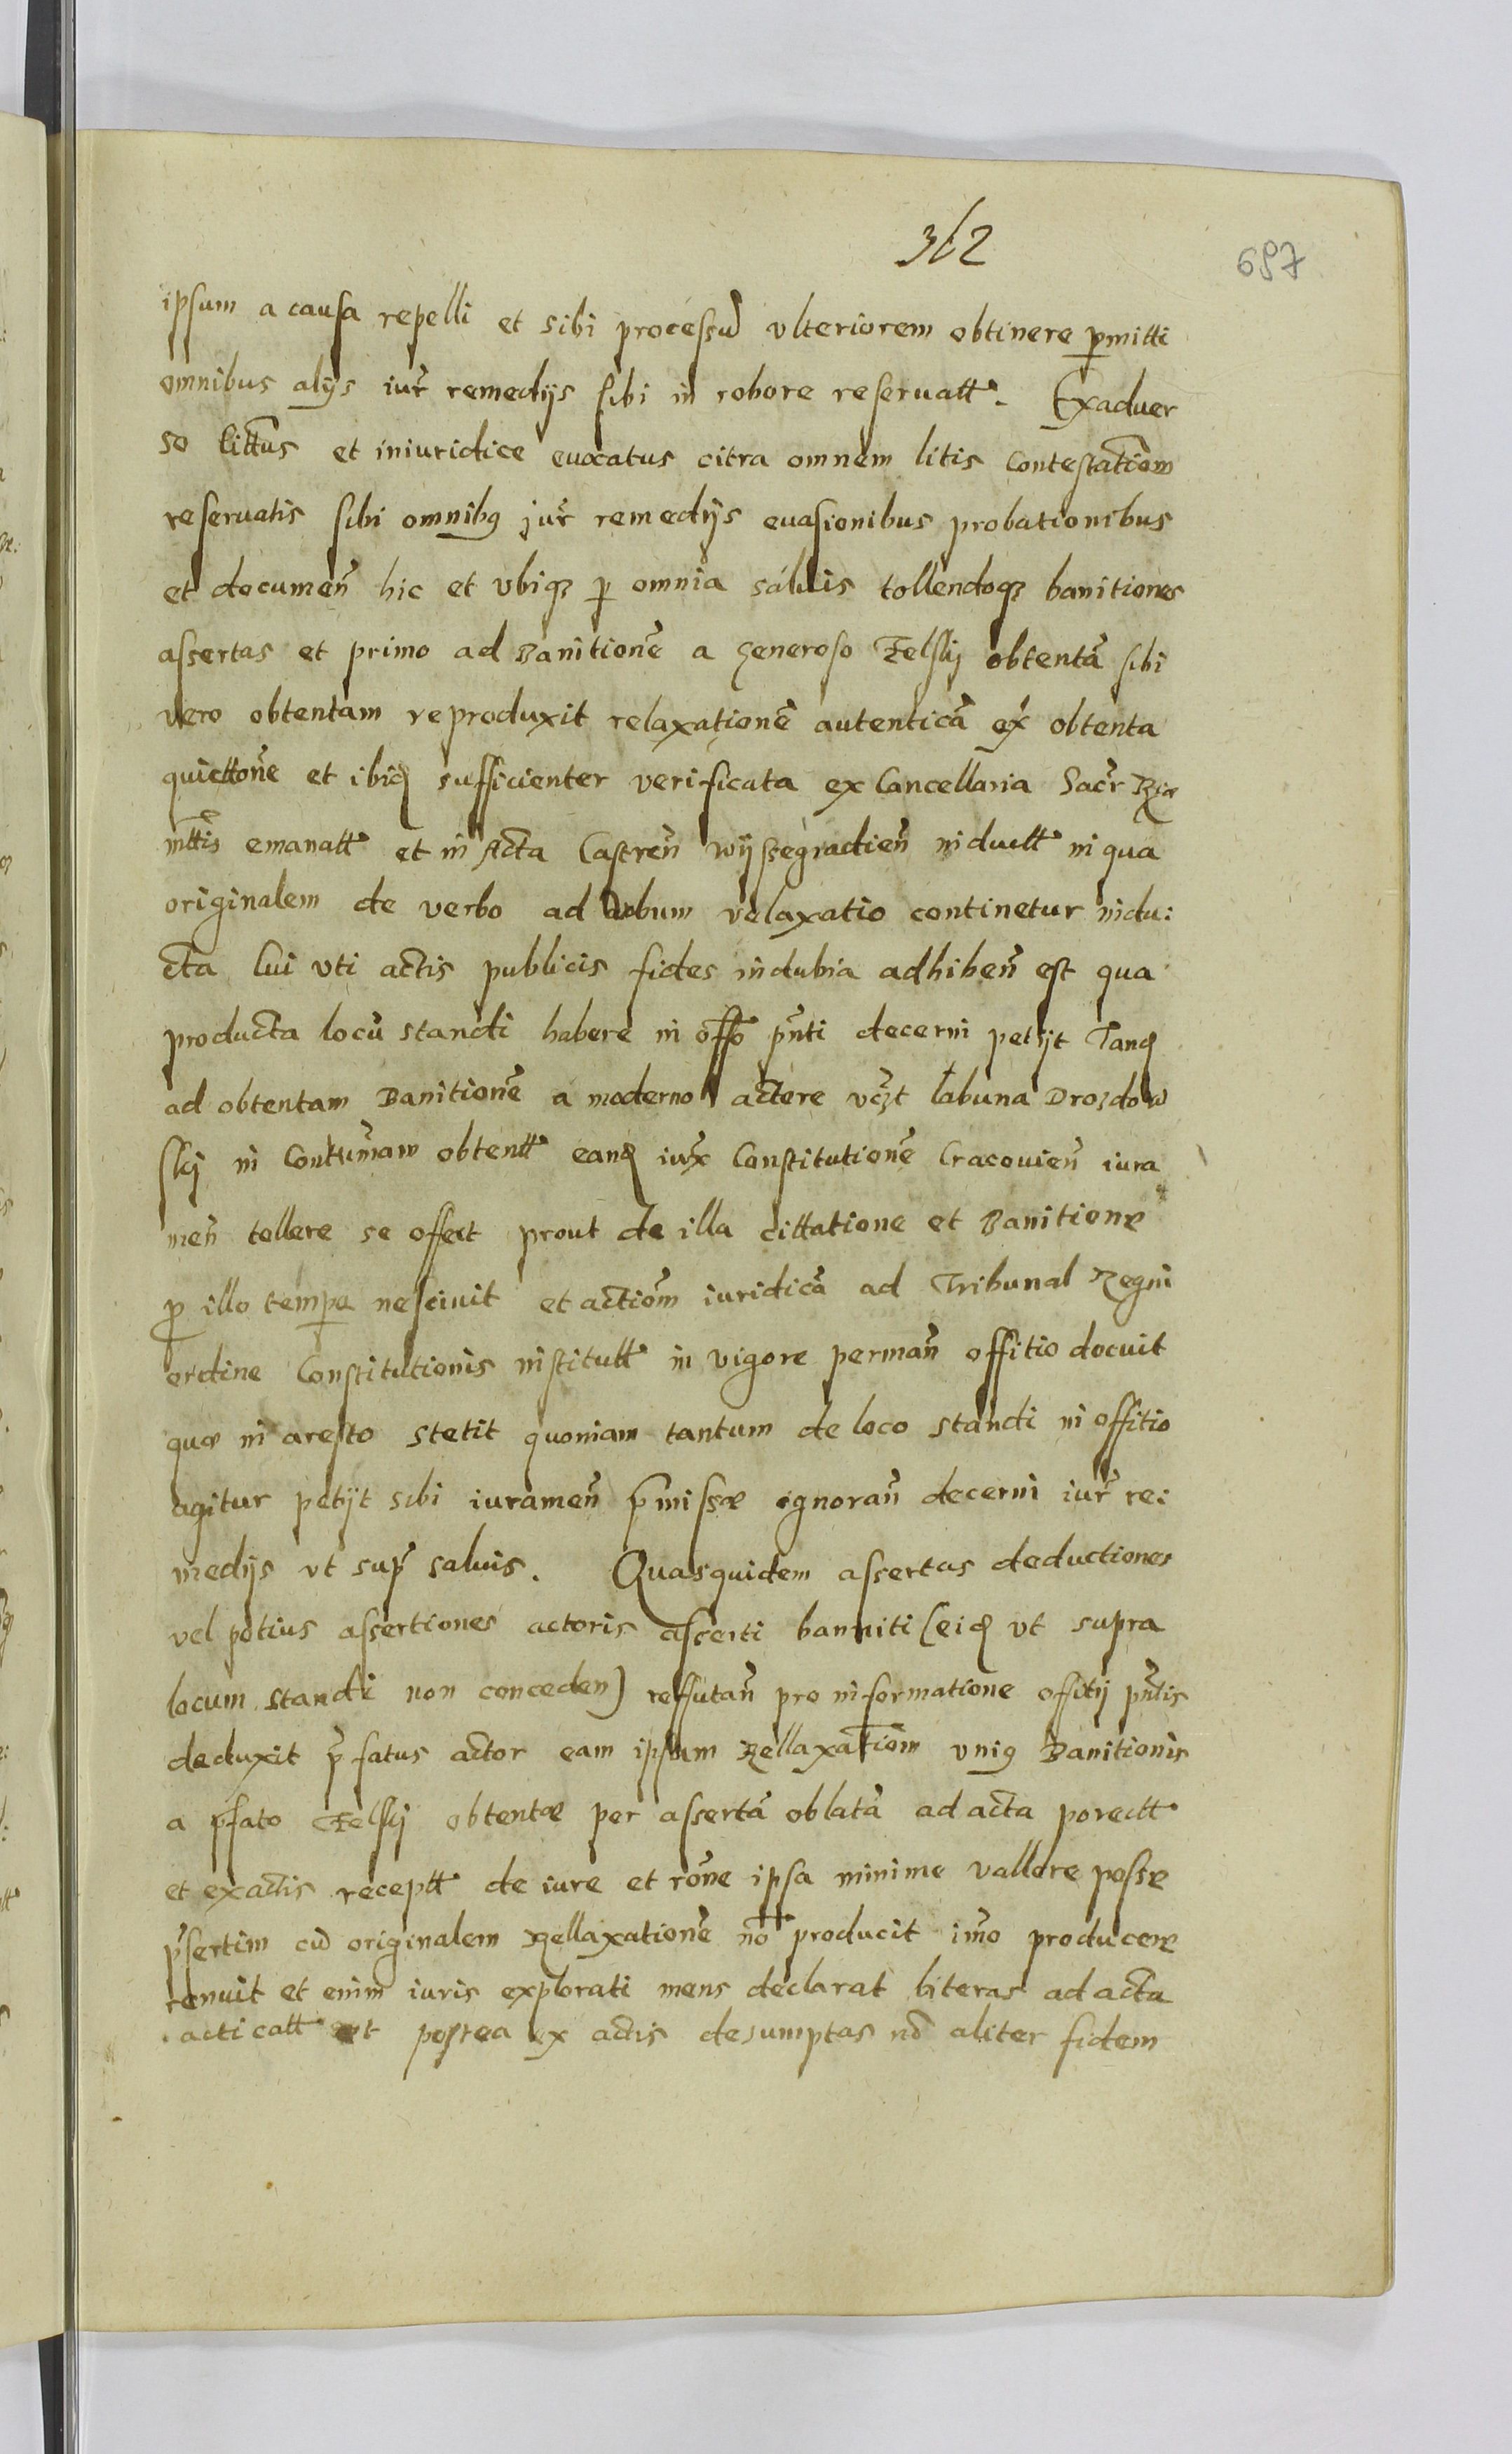 362
697
ipsum a causa repelli et sibi processū vlteriorem obtinere pmitti
omnibus alijs iur̃ remedijs sibi in robore reseruatt. Exaduer
so littus et iniuridice euocatus citra omnem litis Contestationem
reseruatis sibi omnibꝯ jur̃ remedijs euasionibus probationibus
et documeñ hic et vbiqꝫ p omnia saluis tollendoqꝫ banitiones
assertas et primo ad Banitionē a generoso Felskj obtentā sibi
vero obtentam reproduxit relaxationē autenticā ex obtenta
quiettone et ibid sufficienter verificata ex Cancellaria Sacr̃ Rgæ
mttis emanatt et in Acta Castreñ wijssegradieñ inductt in qua
originalem de verbo ad verbum relaxatio continetur indu:
cta cui vti actis publicis fides indubia adhibeñ est qua
producta locū standi habere in offo pñti decerni petijt Tand
ad obtentam Banitionē a moderno actore vczt Łabuna Drozdow
skj in Contumam obtentt eand iux Constitutionē Cracouieñ iura
meñ tollere se offert prout de illa cittatione et Banitione
p illo tempe nesciuit et actiom iuridicā ad Tribunal Regni
ordine Constitutionis institutt in vigore permañ offitio docuit
quæ in aresto stetit quoniam tantum de loco standi in offitio
agitur petijt sibi iurameñ pmissæ ignorañ decerni iur̃ re:
medijs vt sup saluis. Quasquidem assertas deductiones
vel potius assertiones actoris asserti banniti (eid vt supra
locum standi non conceden) reffutañ pro informatione offitij pñtis
deduxit pfatus actor eam ipsam Rellaxatiom vniꝯ Banitionis
a pfato Felskj obtentæ per assertā oblatā ad acta porectt
et ex actis receptt de iure et rōne ipsa minime vallere posse
psertim cū originalem Rellaxationē nō producit imo producere
renuit et enim iuris explorati mens declarat literas ad acta
acticatt et postea ex actis desumptas nō aliter fidem